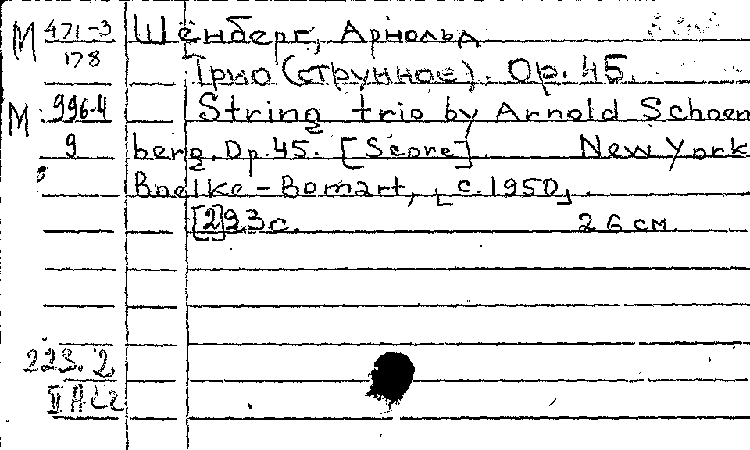 М 471-3 Шёнберг, Арнольд
178 Трио (струнное). Op. 45.
М 996-4 String trio by Arnold Schoen
9 berg. Op. 45. [Score] New York
Boelke - Bomart, [c. 1950].
[2]23 с. 26 см.
223. 2